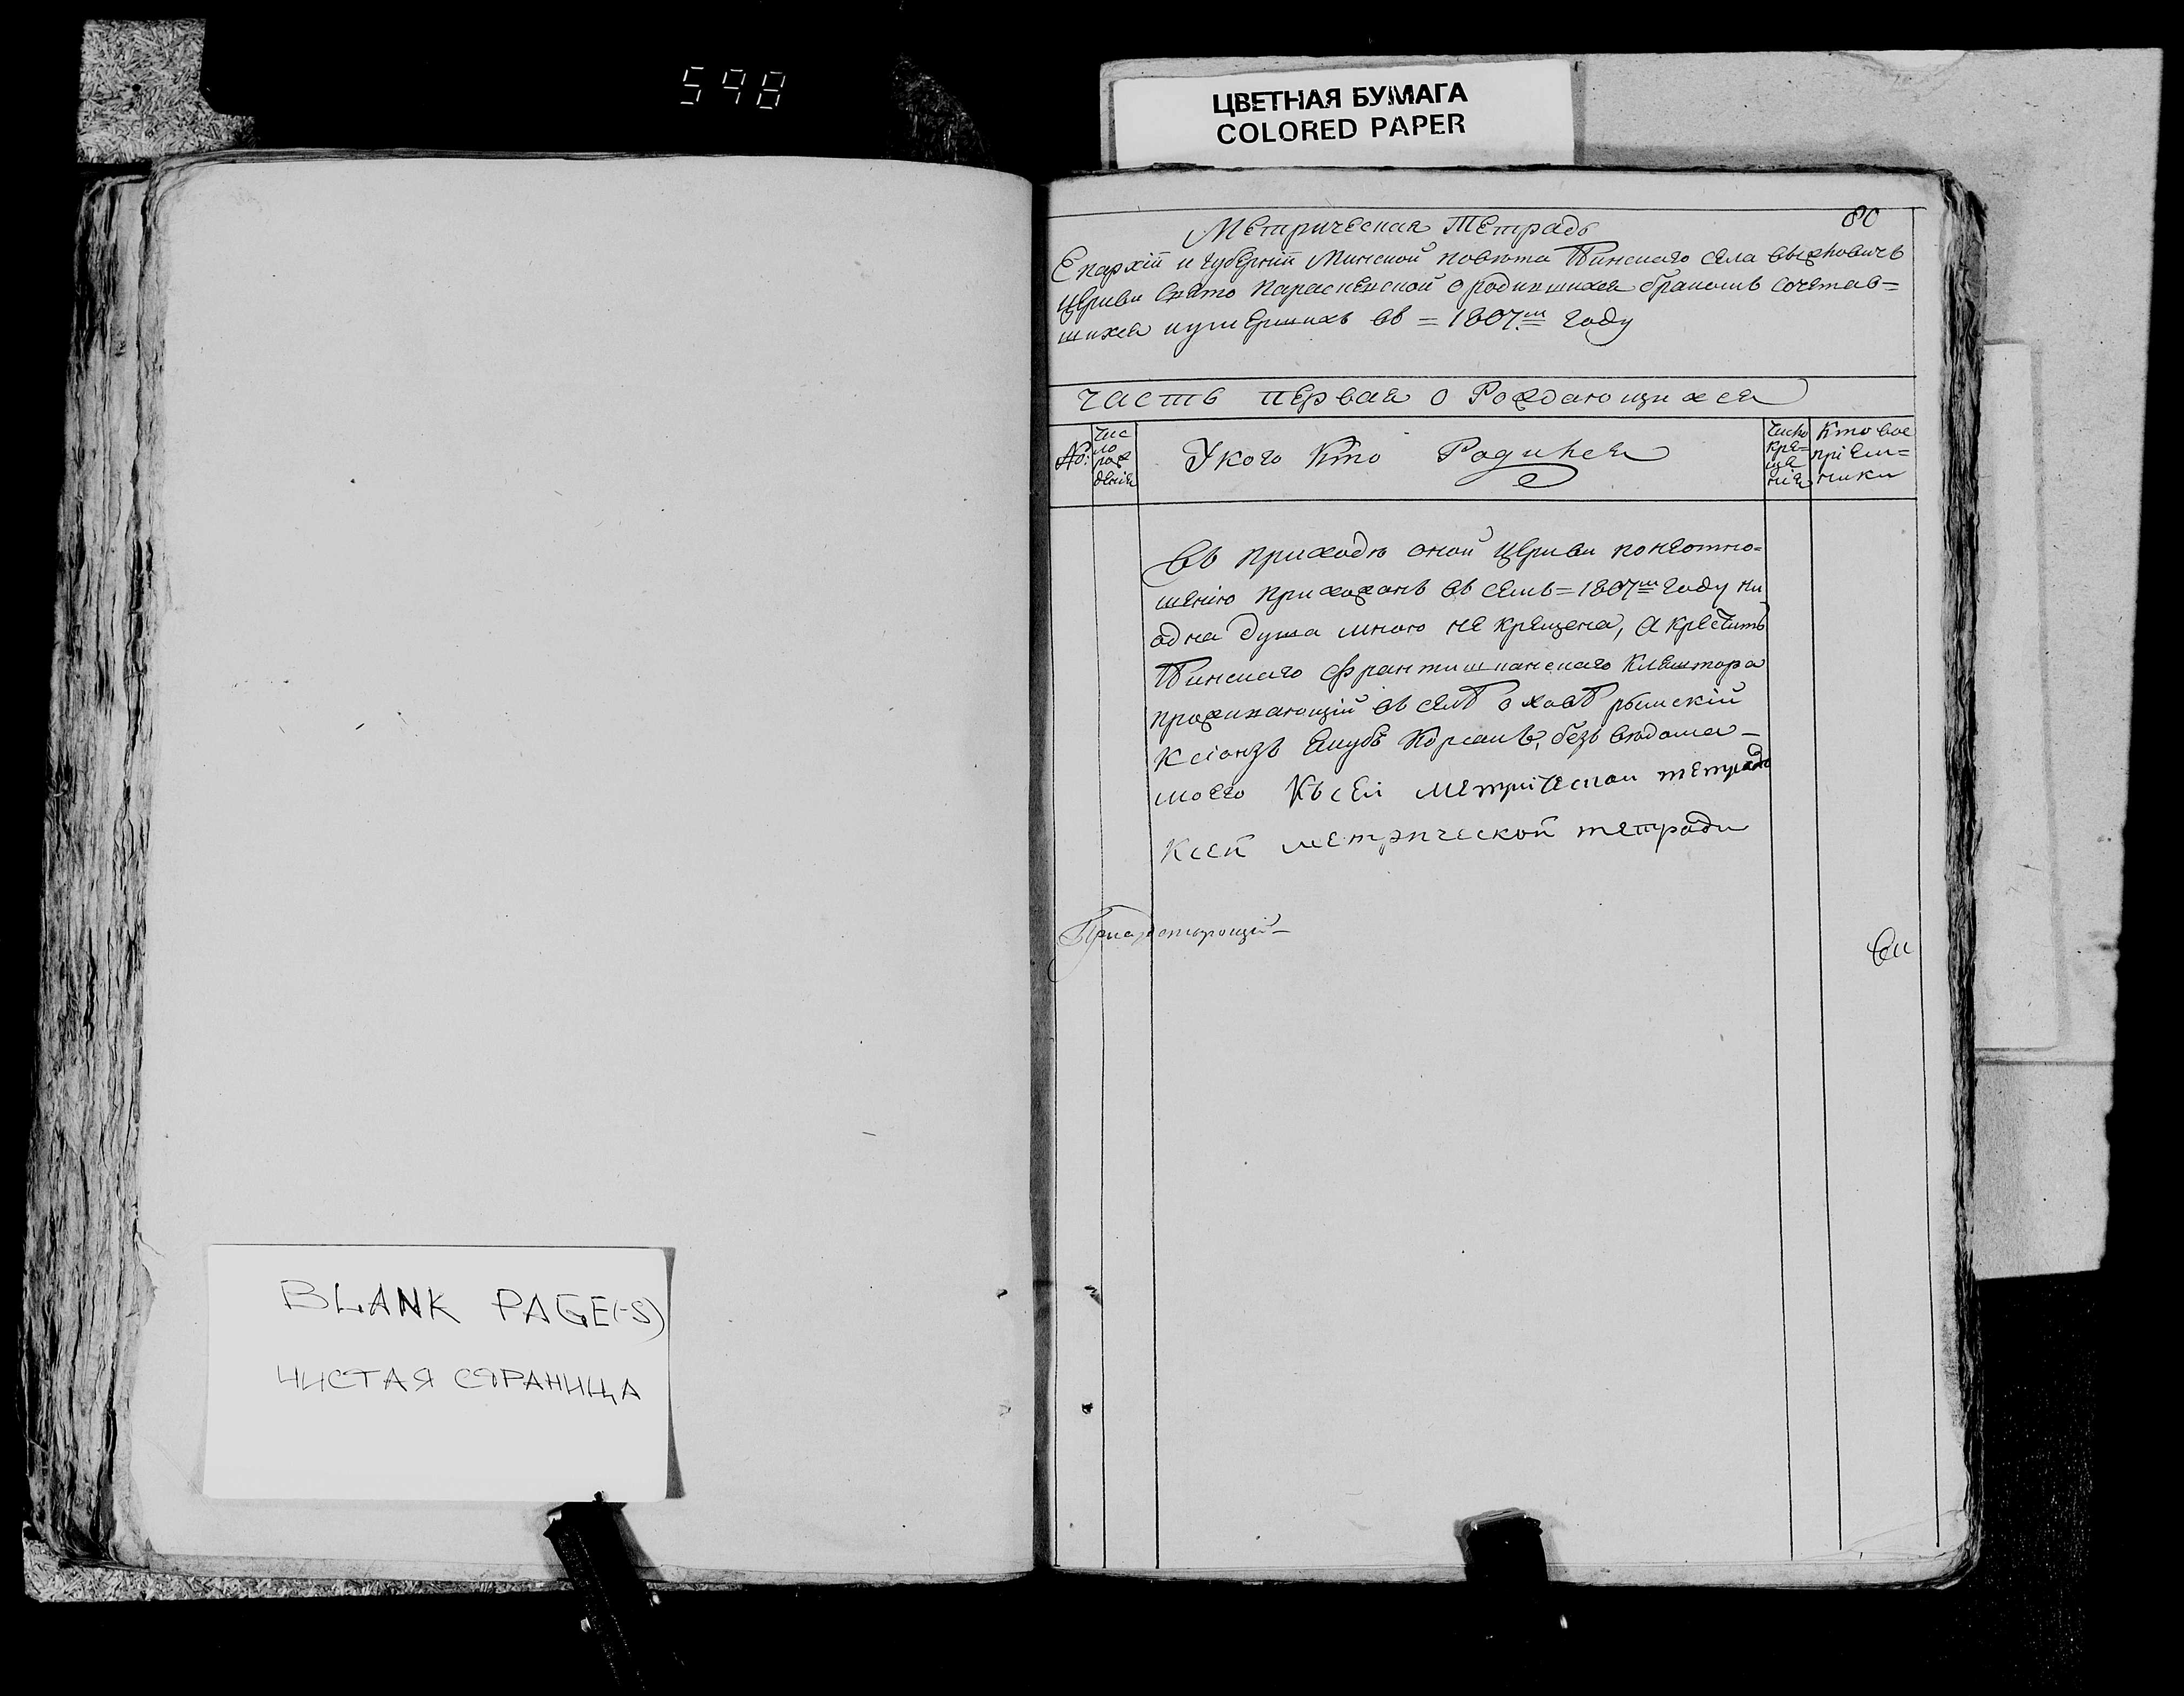 598
ЦВЕТНАЯ БУМАГА
COLORED PAPER
80
Метрическая Тетрадь
Епархіи и Губерніи Минской повѣта Пинскаго села Выжновичъ
Церкви Свято Параскевской о родившихся бракомъ сочетав=
шихся и умершихъ въ = 1807м году
Часть первая о Рождающихся
№:
Чис
ло
рож
денія
У кого Кто Родился
Число
Кре=
ще
нія
Кто вос
пріем=
ники
Въ приходѣ оной Церкви по неотно=
шенію прихожанъ въ семъ = 1807м году ни
одна душа мною не крещена, а креститъ
Пинскаго Францишканскаго Кляштора
проживающій въ селѣ Оховѣ рымскій
Ксіонзъ Якубъ Корсакъ, безъ вѣдома
моего Къ сей метрической тетради
К сей метрической тетради
BLANK PAGE(-S)
ЧИСТАЯ СТРАНИЦА